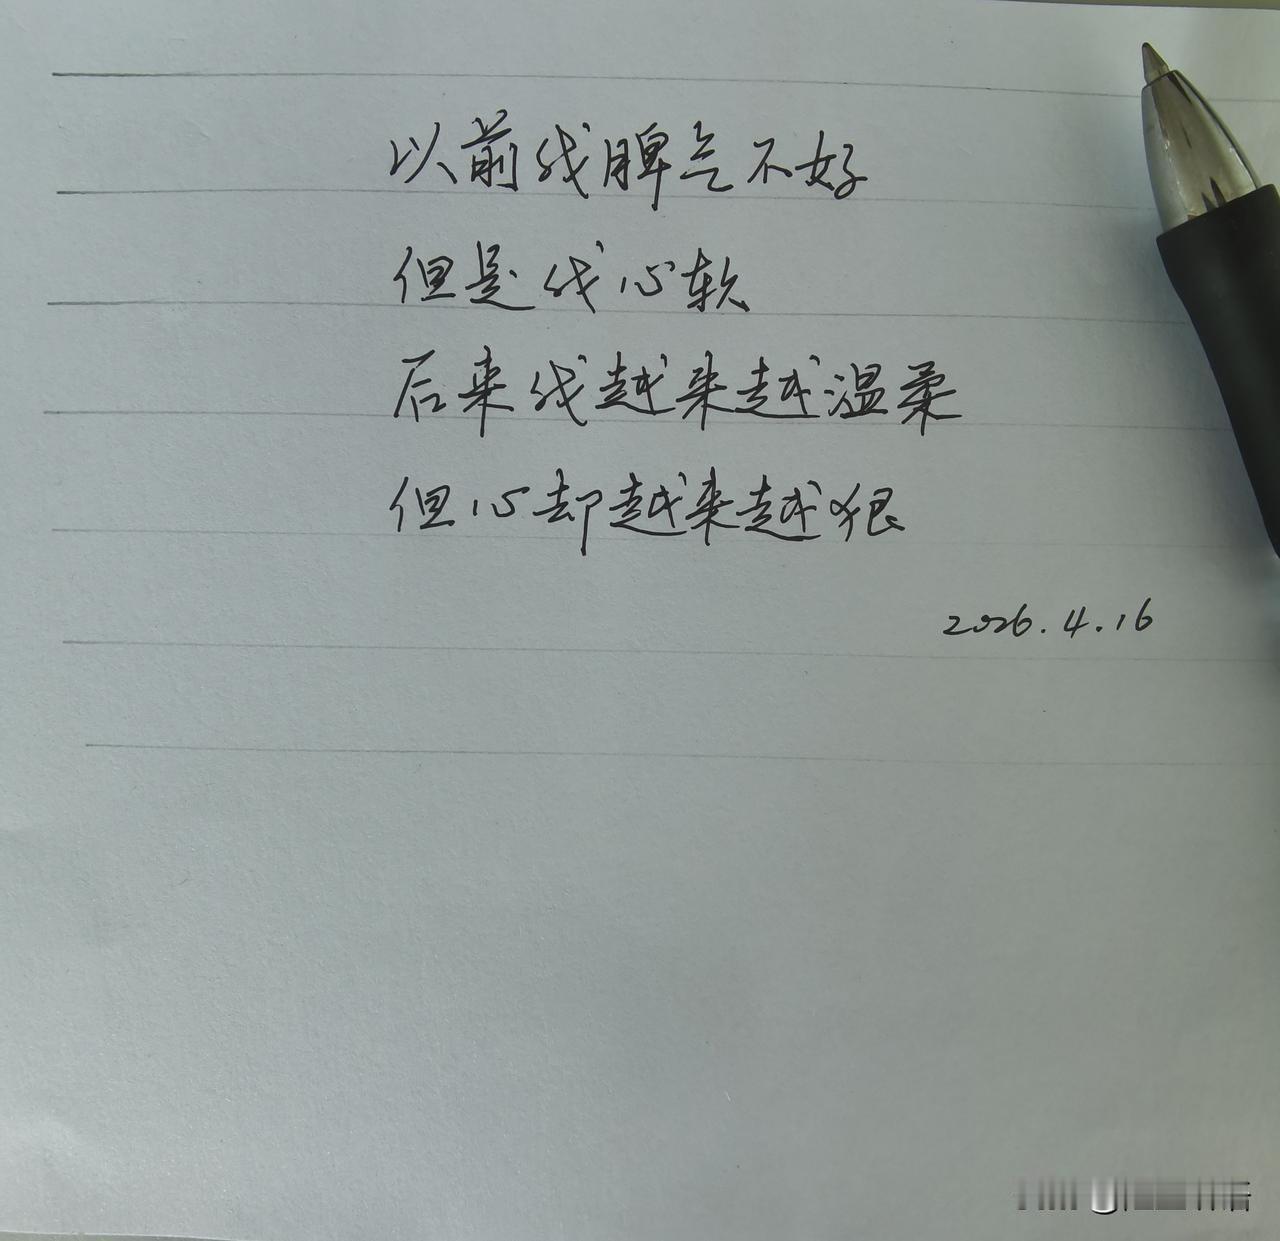 以前我脾气不好
但是我心软
后来我越来越温柔
但心却越来越狠
2026.4.16